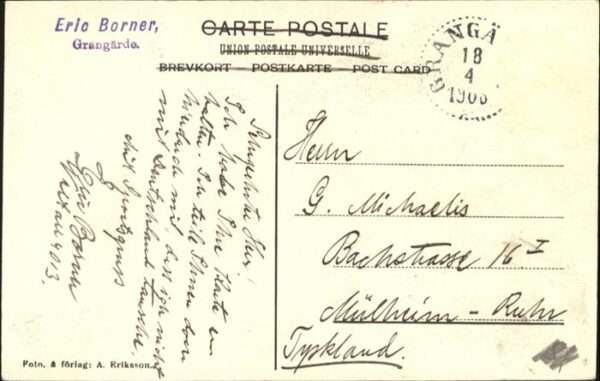 Eric Borner,
Grangärde.
CARTE POSTALE
UNION POSTALE UNIVERSELLE
BREVKORT – POSTKARTE – POST CARD
GRANGÄ
18
4
1906
Sehrgeehrter Herr!
Ich habe Ihre Karte er
halten. Ich teile Ihnen
hiedurch mit, dass ich nicht
mit Deutschland tausche.
Mit Gruss
Eric Borner
Herrn
G. Michaelis
Bachstrasse 16 I
Mülheim – Ruhr
Tyskland.
Foto. & förlag: A. Eriksson.